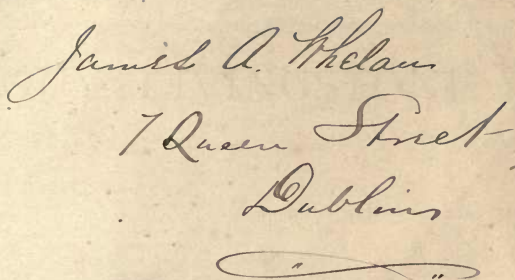 James A. Whelan
7 Queen Street
Dublin